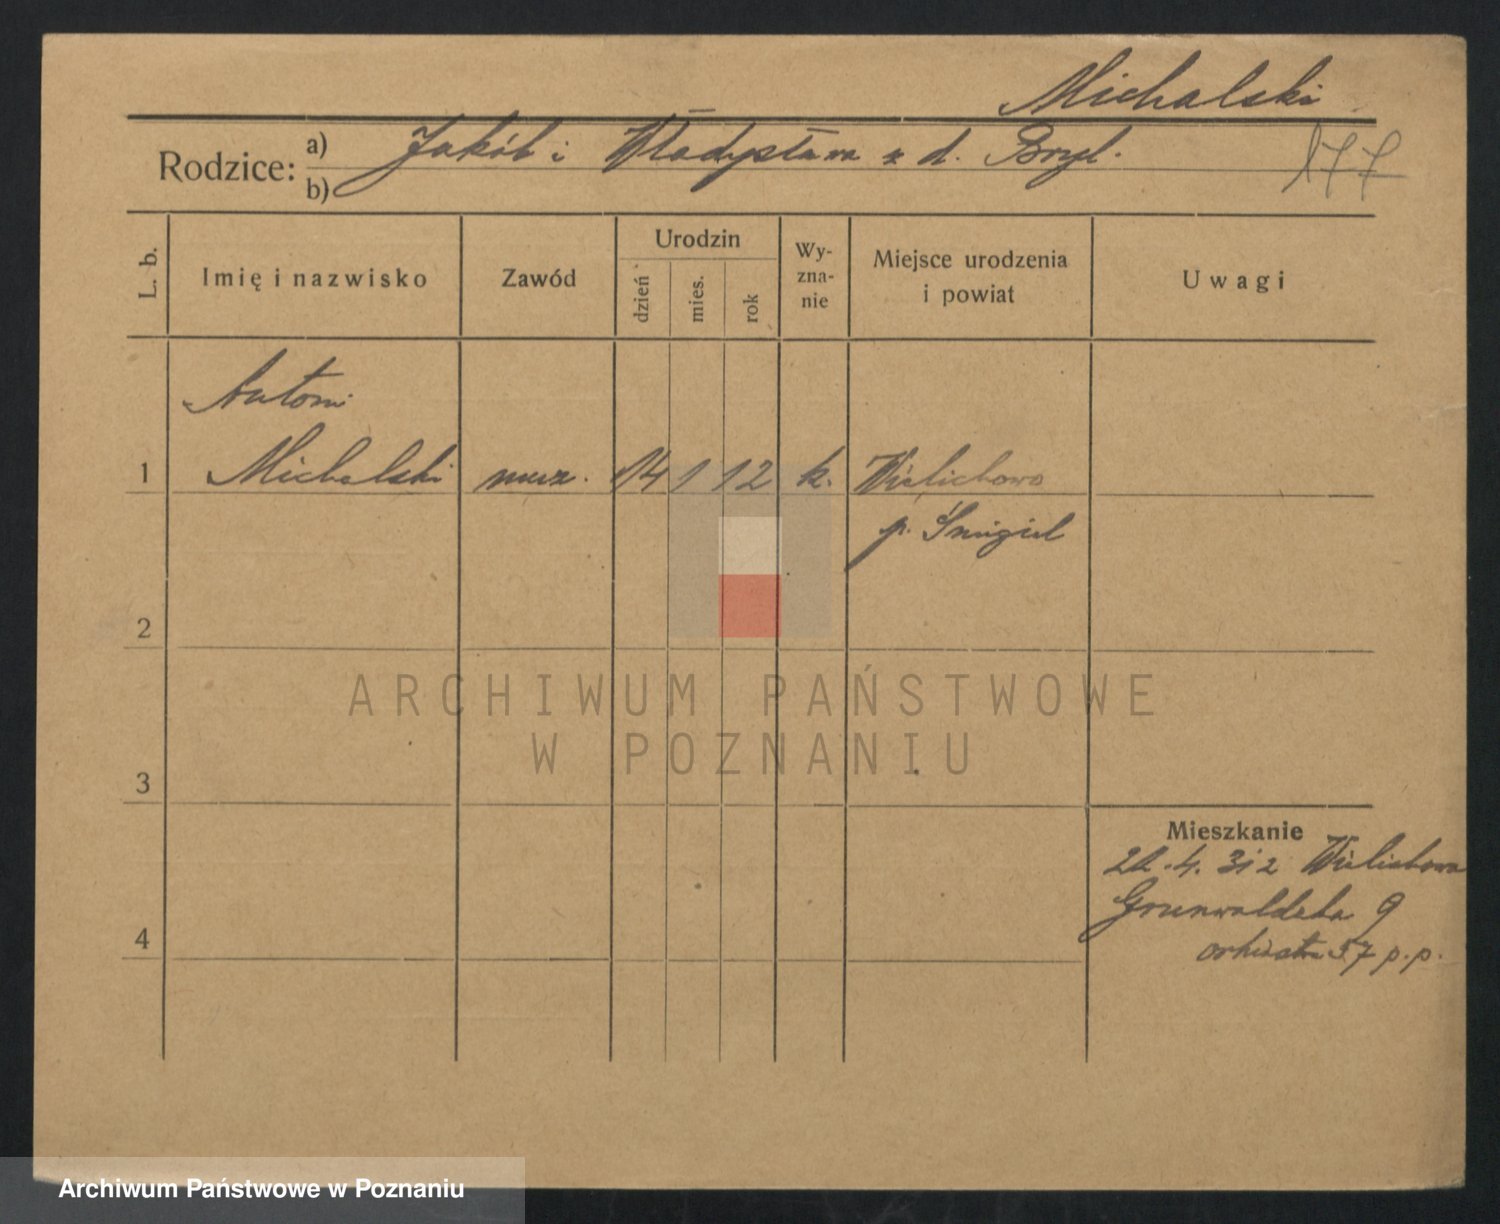 Michalski
Rodzice: a) Jakób i Władysława z d. Bryl.
b)
177
L. b.
Imię i nazwisko
Zawód
Urodzin
dzień
mies.
rok
Wy-
zna-
nie
Miejsce urodzenia
i powiat
Uwagi
Antoni
1 Michalski muz. 14 1 12 k. Wielichowo
p. Śmigiel
2
3
4
Mieszkanie
z Wielichowa
Grunwaldzka 9
orkiestra 57 p.p.
ARCHIWUM PAŃSTWOWE
W POZNANIU
Archiwum Państwowe w Poznaniu